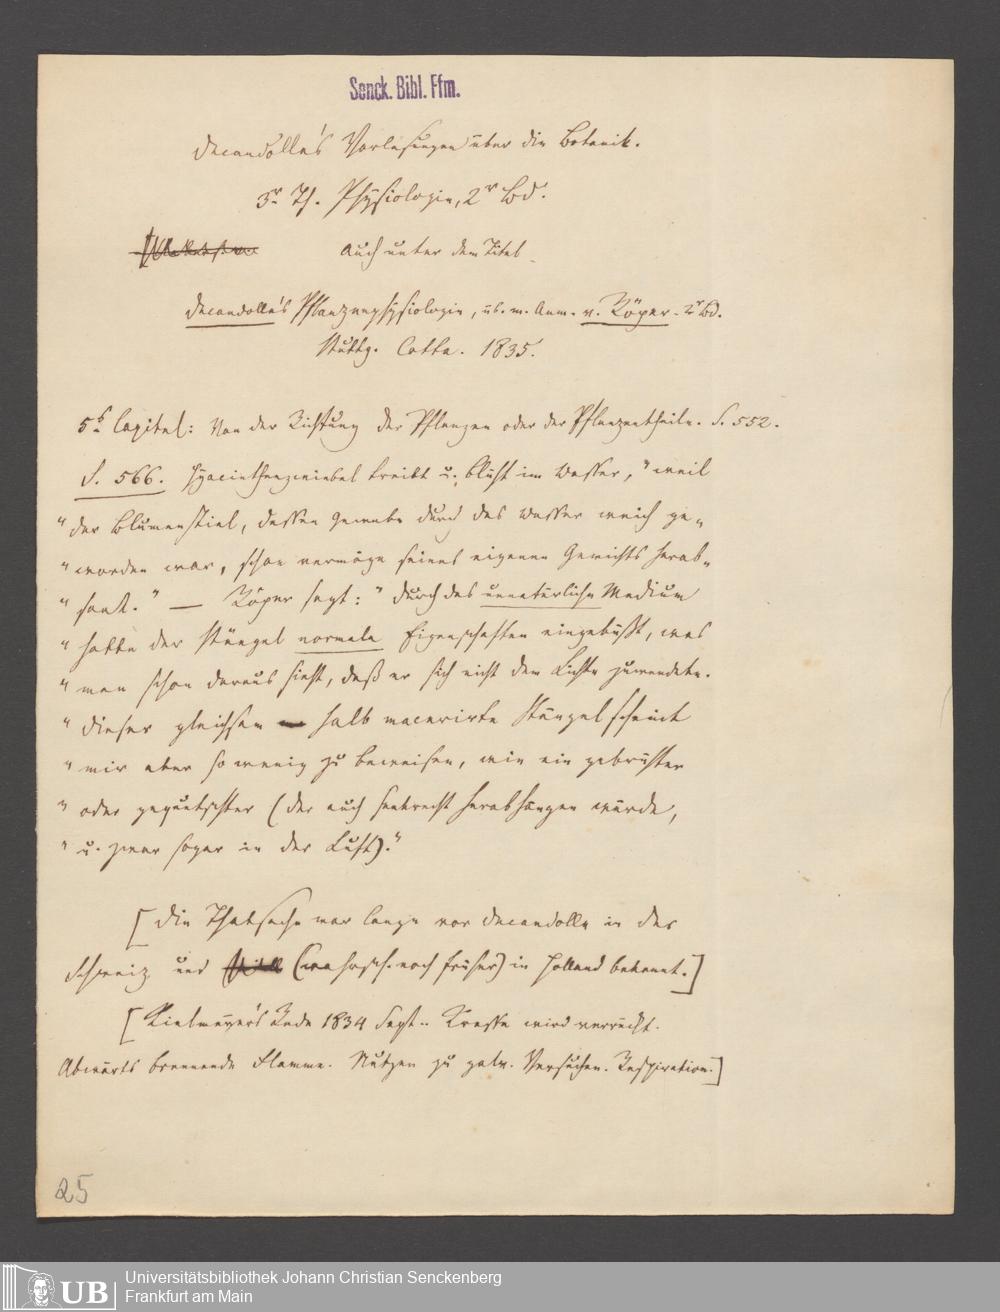 Senck. Bibl. Ffm.
Decandolle's Vorlesungen über die Botanik.
3r Th. Physiologie, 2r Bd.
Auch unter dem Titel
Decandolle's Pflanzenphysiologie, üb. m. Anm. v. Röper. 2r Bd.
Stuttg. Cotta. 1835.
5s Capitel: Von der Richtung der Pflanzen oder der Pflanzentheile. S. 552.
S. 566. Hyacinthenzwiebel treibt u. blüht im Wasser, "weil
"der Blumenstiel, dessen Gewebe durch das Wasser weich ge-
"worden war, schon vermöge seines eigenen Gewichts herab-
"sank." — Röper sagt: "Durch das unnatürliche Medium
"hatte der Stängel normale Eigenschaften eingebüßt, was
"man schon daraus sieht, daß er sich nicht dem Lichte zuwendete.
"Dieser gleichsam halb macerirte Stängel scheint
"mir aber so wenig zu beweisen, wie ein gebrühter
"oder gequetschter (der auch senkrecht herabhängen würde,
"u. zwar sogar in der Luft)."
[Die Thatsache war lange vor Decandolle in der
Schweiz und (wahrsch. noch früher) in Holland bekannt.]
[Kielmeyer's Rede 1834 Sept. Kresse wird verrückt.
Abwärts brennende Flamme. Nutzen zu galv. Versuchen. Respiration.]
25
UB
Universitätsbibliothek Johann Christian Senckenberg
Frankfurt am Main